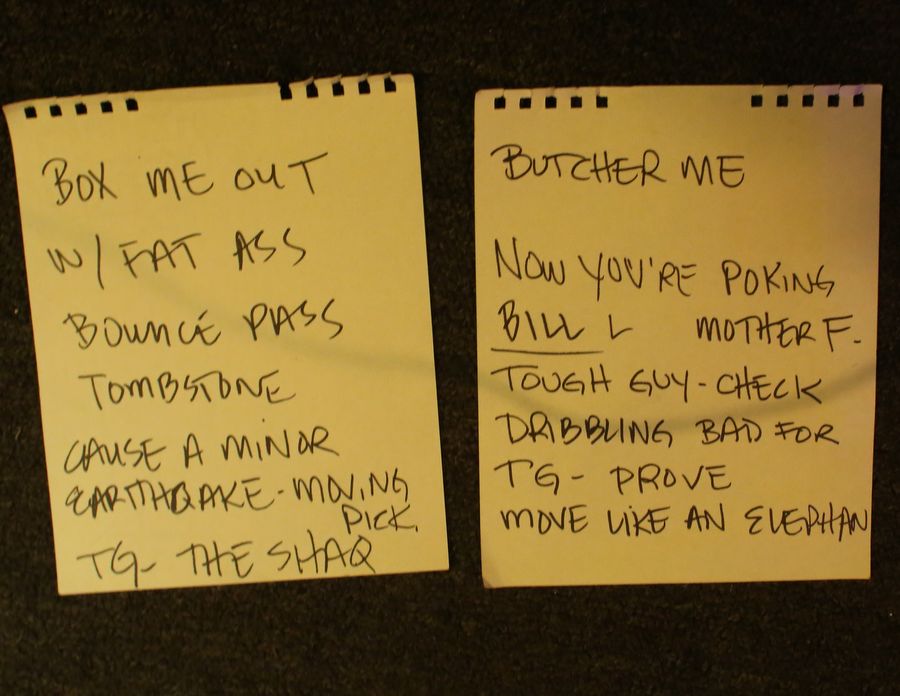 BOX ME OUT
W/ FAT ASS
BOUNCE PASS
TOMBSTONE
CAUSE A MINOR
EARTHQAKE - MOVING
PICK.
TG - THE SHAQ
BUTCHER ME
NOW YOU'RE POKING
BILL L MOTHER F.
TOUGH GUY - CHECK
DRIBBLING BAD FOR
TG - PROVE
MOVE LIKE AN ELEPHAN